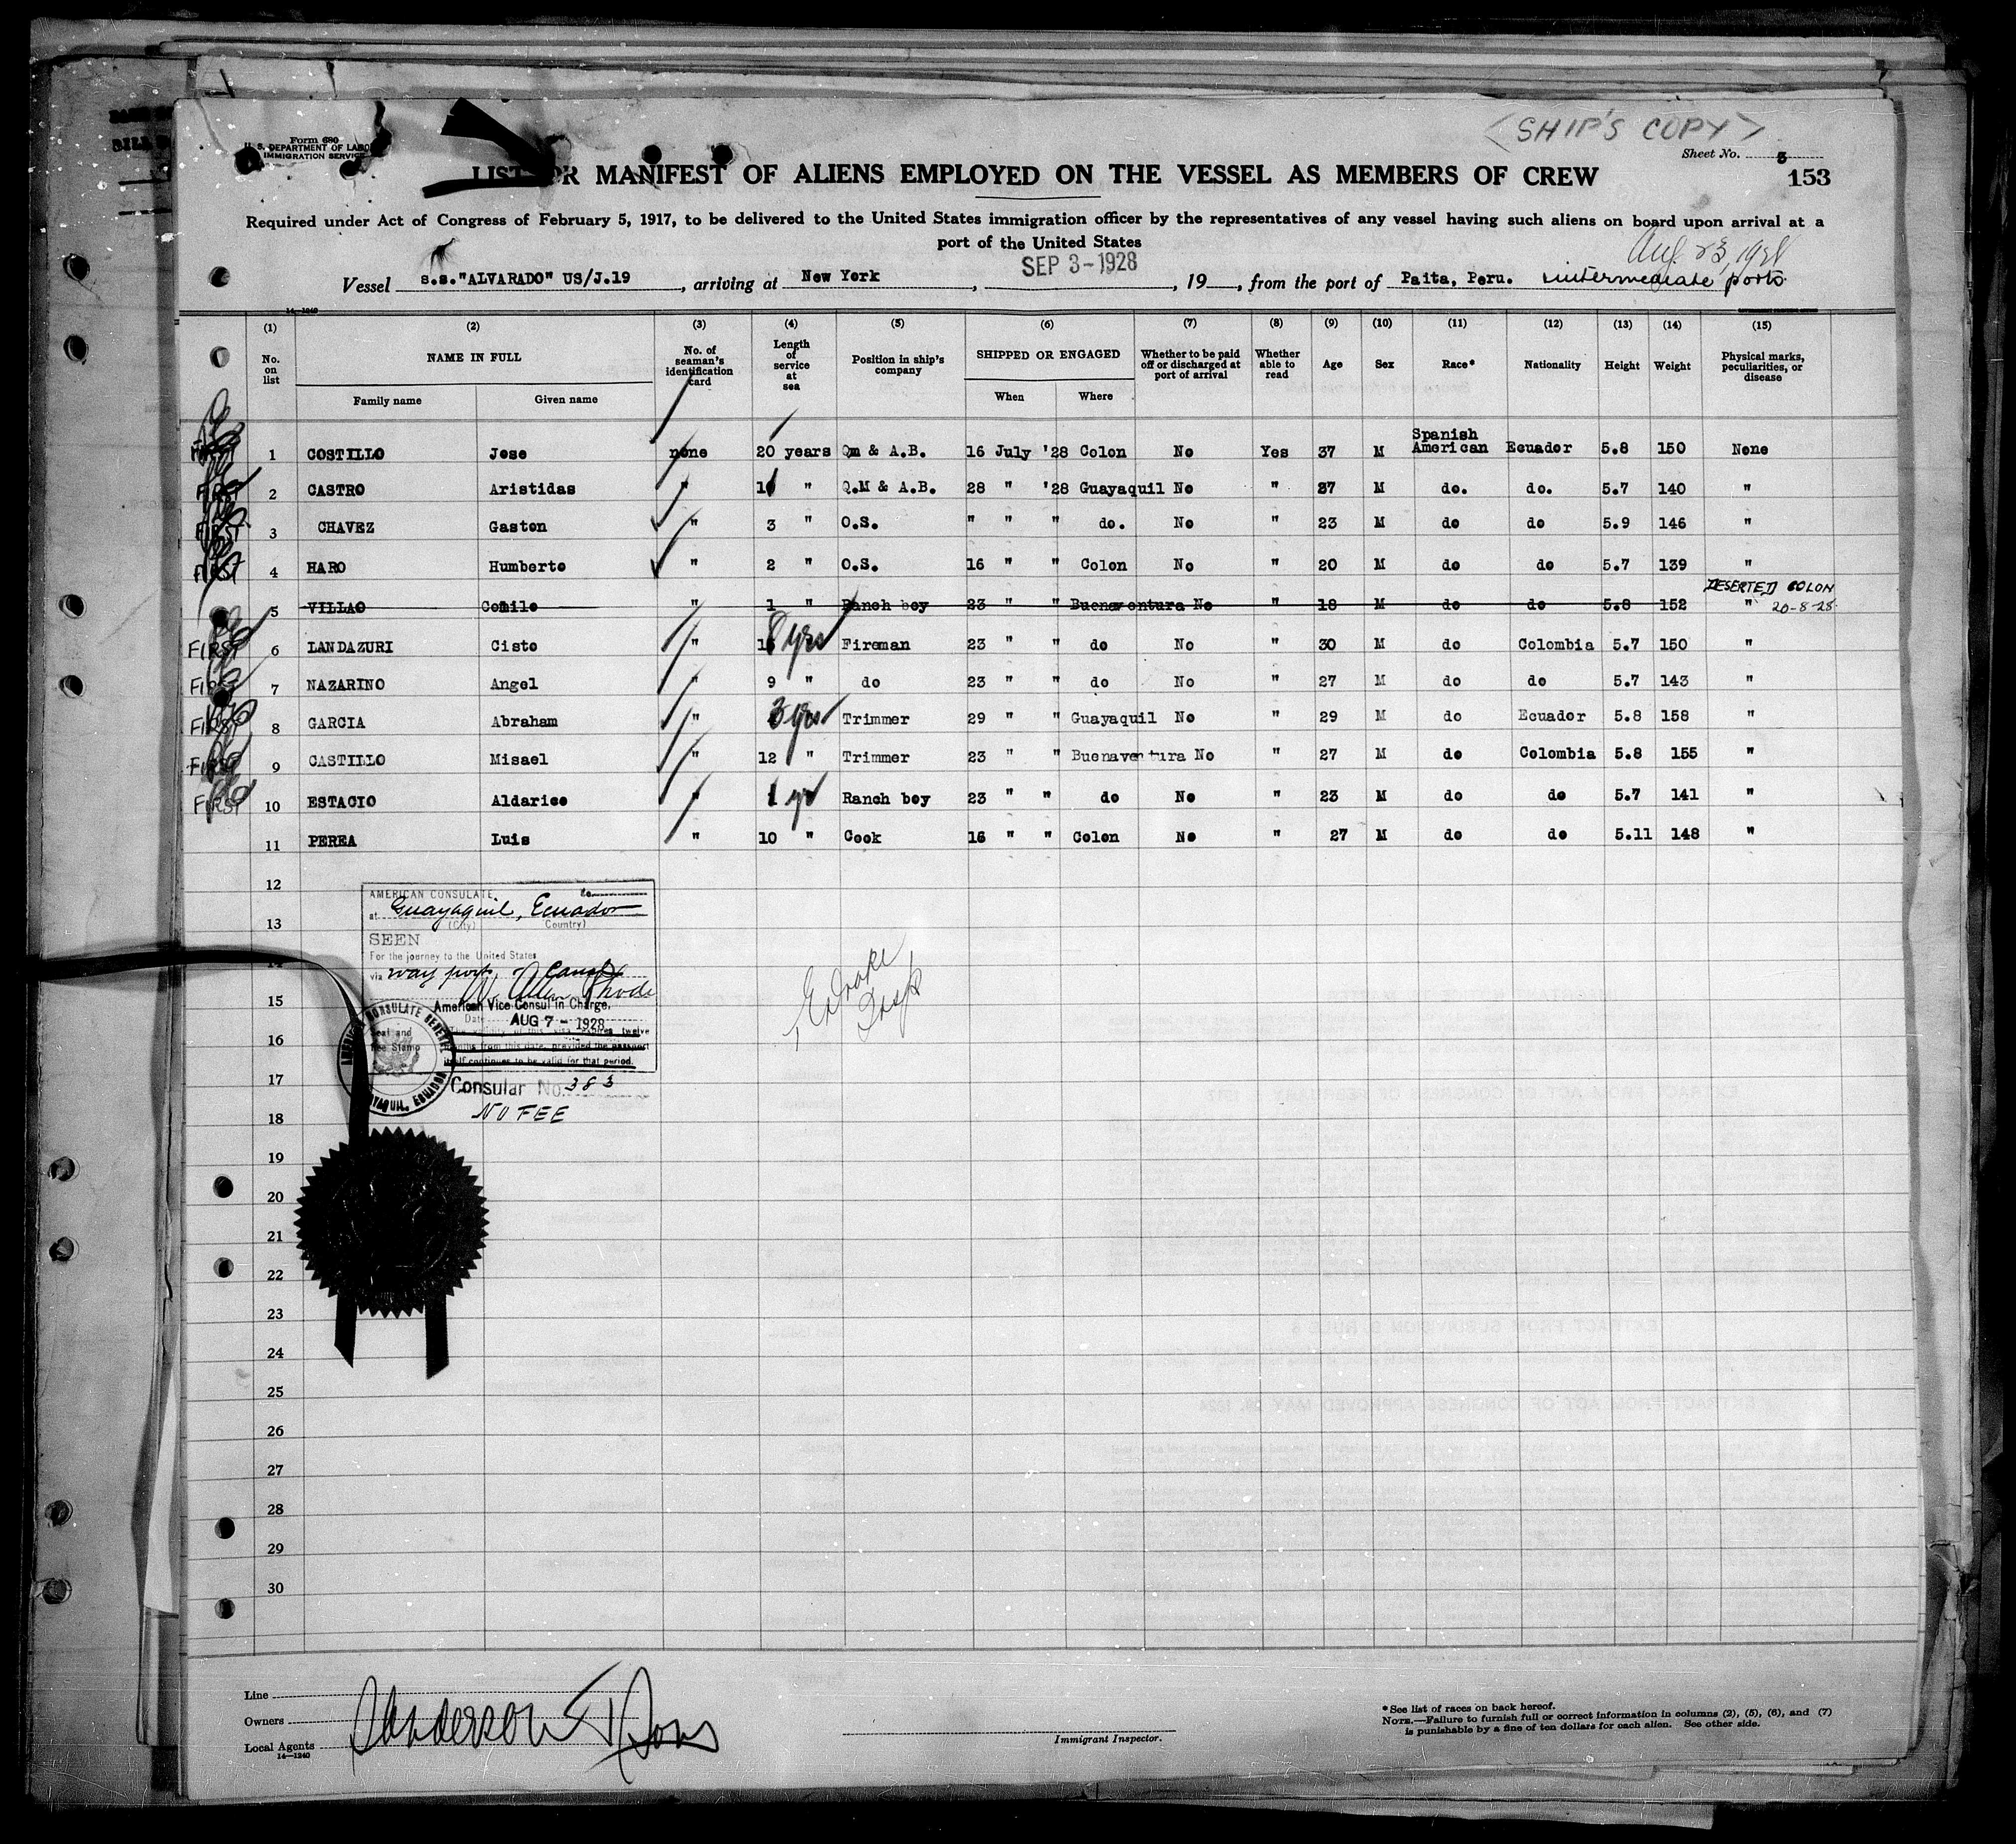 <SHIP'S COPY>
Form 680
U. S. DEPARTMENT OF LABOR
IMMIGRATION SERVICE
Sheet No. 3
LIST OR MANIFEST OF ALIENS EMPLOYED ON THE VESSEL AS MEMBERS OF CREW 153
Required under Act of Congress of February 5, 1917, to be delivered to the United States immigration officer by the representatives of any vessel having such aliens on board upon arrival at a
port of the United States
Aug 23, 1928
Vessel s.s."ALVARADO" US/J.19, arriving at New York, SEP 3-1928, 19__, from the port of Paita, Peru. intermediate ports
14—1240
(1) (2) (3) (4) (5) (6) (7) (8) (9) (10) (11) (12) (13) (14) (15)
No. on list NAME IN FULL Family name Given name No. of seaman's identification card Length of service at sea Position in ship's company SHIPPED OR ENGAGED When Where Whether to be paid off or discharged at port of arrival Whether able to read Age Sex Race* Nationality Height Weight Physical marks, peculiarities, or disease
FIRST 1 COSTILLO Jose none 20 years Qm & A.B. 16 July '28 Colon No Yes 37 M Spanish American Ecuador 5.8 150 None
FIRST 2 CASTRO Aristidas " " Q.M & A.B. 28 " '28 Guayaquil No " 37 M do. do. 5.7 140 "
FIRST 3 CHAVEZ Gaston " 3 " O.S. " " " do. No " 23 M do do 5.9 146 "
FIRST 4 HARO Humberto " 2 " O.S. 16 " " Colon No " 20 M do do 5.7 139 "
5 VILLAO Comilo " 1 " Ranch boy 23 " " Buenaventura No " 18 M do do 5.8 152 " DESERTED COLON 20-8-28
FIRST 6 LANDAZURI Cisto " 8 yrs Fireman 23 " " do No " 30 M do Colombia 5.7 150 "
FIRST 7 NAZARINO Angel " 9 " do 23 " " do No " 27 M do do 5.7 143 "
FIRST 8 GARCIA Abraham " 3 yrs Trimmer 29 " " Guayaquil No " 29 M do Ecuador 5.8 158 "
FIRST 9 CASTILLO Misael " 12 " Trimmer 23 " " Buenaventura No " 27 M do Colombia 5.8 155 "
FIRST 10 ESTACIO Aldarico " 1 yr Ranch boy 23 " " do No " 23 M do do 5.7 141 "
11 PEREA Luis " 10 " Cook 16 " " Colon No " 27 M do do 5.11 148 "
12
13
14
15
16
17
18
19
20
21
22
23
24
25
26
27
28
29
30
AMERICAN CONSULATE
at Guayaquil, Ecuador
(City) (Country)
SEEN
For the journey to the United States
via way ports
American Vice Consul in Charge.
Date AUG 7 - 1928
The validity of this visa expires twelve
months from this date, provided the passport
itself continues to be valid for that period.
Seal and
Fee Stamp
AMERICAN CONSULATE GENERAL
GUAYAQUIL, ECUADOR
Consular No. 383
NO FEE
Line
Owners
Local Agents
14—1240
Sanderson & Sons
Immigrant Inspector.
*See list of races on back hereof.
NOTE.—Failure to furnish full or correct information in columns (2), (5), (6), and (7)
is punishable by a fine of ten dollars for each alien. See other side.